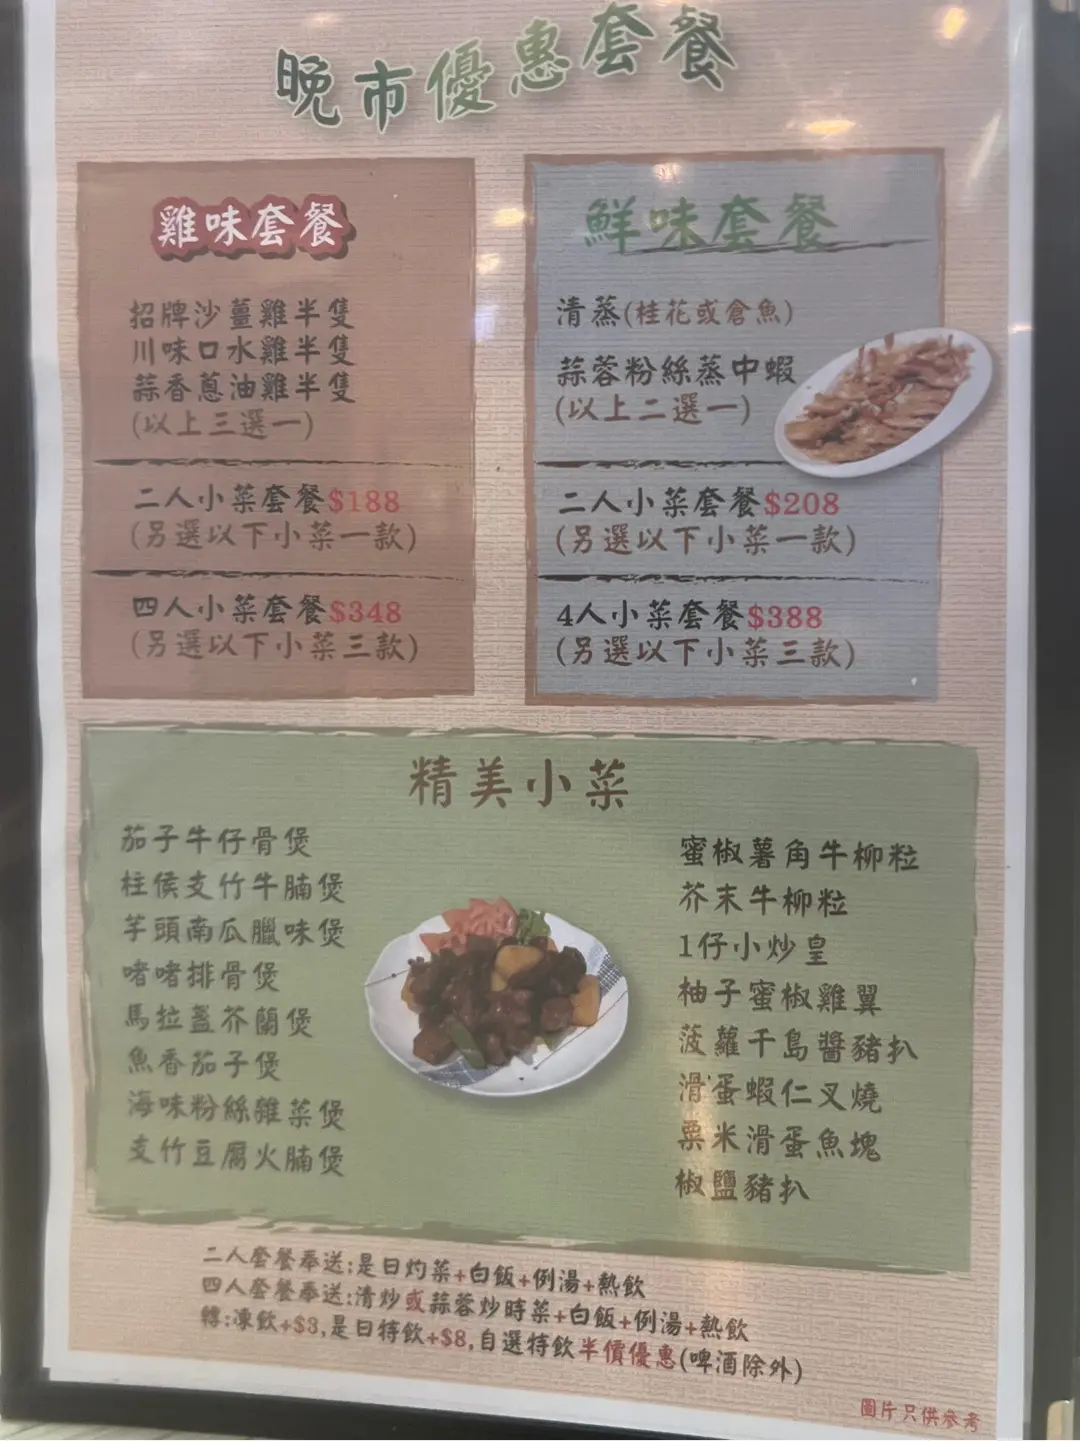 晚市優惠套餐
雞味套餐
招牌沙薑雞半隻
川味口水雞半隻
蒜香蔥油雞半隻
(以上三選一)
二人小菜套餐$188
(另選以下小菜一款)
四人小菜套餐$348
(另選以下小菜三款)
鮮味套餐
清蒸(桂花或倉魚)
蒜蓉粉絲蒸中蝦
(以上二選一)
二人小菜套餐$208
(另選以下小菜一款)
4人小菜套餐$388
(另選以下小菜三款)
精美小菜
茄子牛仔骨煲
柱侯支竹牛腩煲
芋頭南瓜臘味煲
啫啫排骨煲
馬拉盞芥蘭煲
魚香茄子煲
海味粉絲雜菜煲
支竹豆腐火腩煲
蜜椒薯角牛柳粒
芥末牛柳粒
1仔小炒皇
柚子蜜椒雞翼
菠蘿千島醬豬扒
滑蛋蝦仁叉燒
粟米滑蛋魚塊
椒鹽豬扒
二人套餐奉送:是日灼菜+白飯+例湯+熱飲
四人套餐奉送:清炒或蒜蓉炒時菜+白飯+例湯+熱飲
轉:凍飲+$3,是日特飲+$8,自選特飲半價優惠(啤酒除外)
圖片只供參考